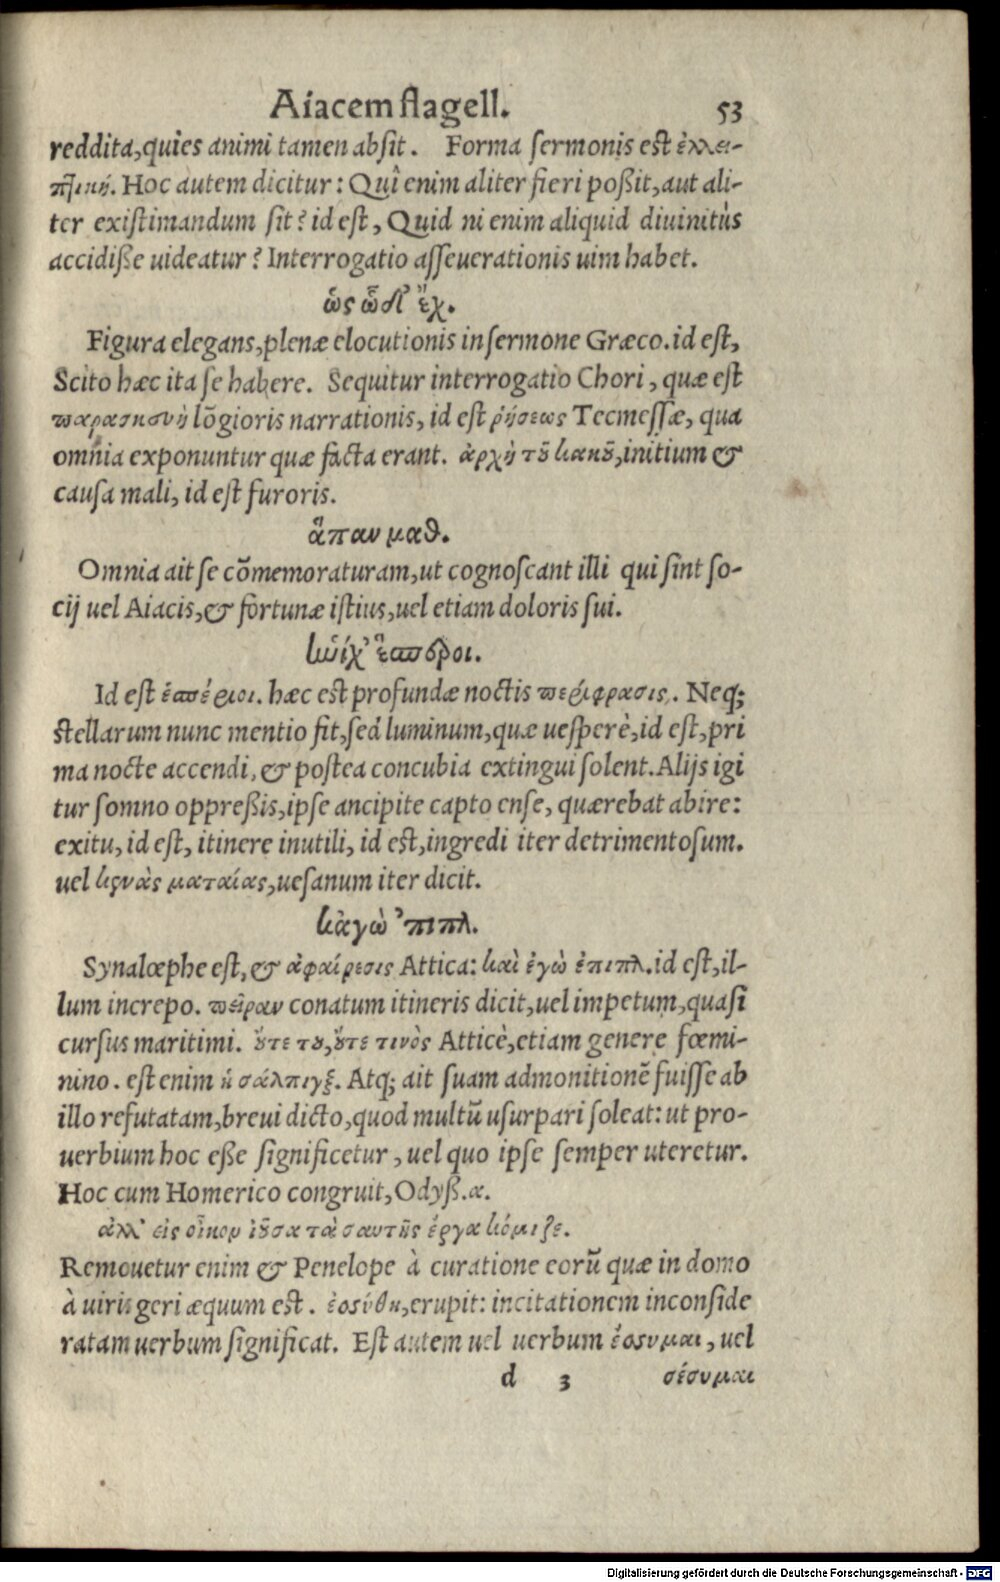 Aiacem flagell. 53
reddita, quies animi tamen absit. Forma sermonis est ἐλλει-
πτικὴ. Hoc autem dicitur: Quî enim aliter fieri poßit, aut ali-
ter existimandum sit? id est, Quid ni enim aliquid diuinitùs
accidiße uideatur? Interrogatio asseuerationis uim habet.
ὡς ὧδ' ἔχ.
Figura elegans, plenæ elocutionis in sermone Græco. id est,
Scito hæc ita se habere. Sequitur interrogatio Chori, quæ est
παρασκευὴ lõgioris narrationis, id est ῥήσεως Tecmessæ, qua
omnia exponuntur quæ facta erant. ἀρχὴ τοῦ κακοῦ, initium &
causa mali, id est furoris.
ἅπαν μαθ.
Omnia ait se cõmemoraturam, ut cognoscant illi qui sint so-
cij uel Aiacis, & fortunæ istius, uel etiam doloris sui.
ἡνίχ' ἕσπεροι.
Id est ἑσπέριοι. hæc est profundæ noctis περίφρασις. Neq;
stellarum nunc mentio fit, sed luminum, quæ uesperè, id est, pri
ma nocte accendi, & postea concubia extingui solent. Alijs igi
tur somno oppreßis, ipse ancipite capto ense, quærebat abire:
exitu, id est, itinere inutili, id est, ingredi iter detrimentosum.
uel κενὰς ματαίας, uesanum iter dicit.
κἀγὼ 'πιπλ.
Synalœphe est, & ἀφαίρεσις Attica: καὶ ἐγὼ ἐπιπλ. id est, il-
lum increpo. πεῖραν conatum itineris dicit, uel impetum, quasi
cursus maritimi. οὔτε του, οὔτε τινὸς Atticè, etiam genere fœmi-
nino. est enim ἡ σάλπιγξ. Atq; ait suam admonitionẽ fuisse ab
illo refutatam, breui dicto, quod multũ usurpari soleat: ut pro-
uerbium hoc eße significetur, uel quo ipse semper uteretur.
Hoc cum Homerico congruit, Odyß. α.
ἀλλ' εἰς οἶκον ἰοῦσα τὰ σαυτῆς ἔργα κόμιζε.
Remouetur enim & Penelope à curatione eorũ quæ in domo
à uiris geri æquum est. ἐσύθη, erupit: incitationem inconside
ratam uerbum significat. Est autem uel uerbum ἔσυμαι, uel
d 3 σέσυμαι
Digitalisierung gefördert durch die Deutsche Forschungsgemeinschaft - DFG